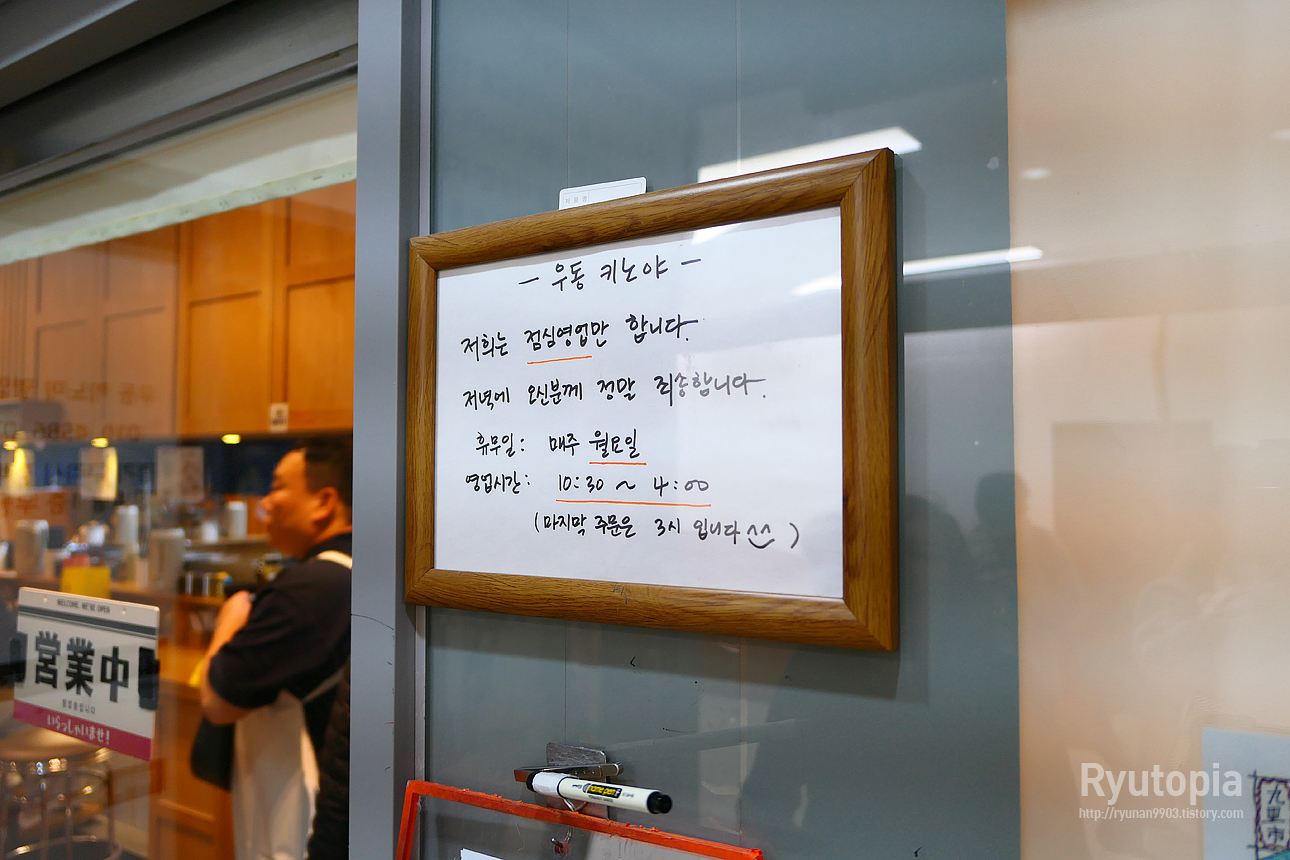 - 우동 키노야 -
저희는 점심영업만 합니다.
저녁에 오신분께 정말 죄송합니다.
휴무일: 매주 월요일
영업시간: 10:30 ~ 4:00
(마지막 주문은 3시 입니다^^)
WELCOME, WE'RE OPEN
営業中
영업중입니다
いらっしゃいませ!
name pen
Ryutopia
http://ryunan9903.tistory.com
九里市